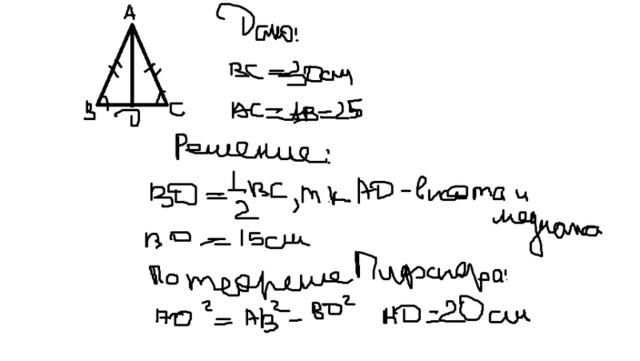 A
B D C
Дано:
BC = 30 см
AC = AB = 25
Решение:
BD = 1/2 BC, т к AD - высота и медиана
BD = 15 см
По теореме Пифагора:
AD² = AB² - BD² AD = 20 см